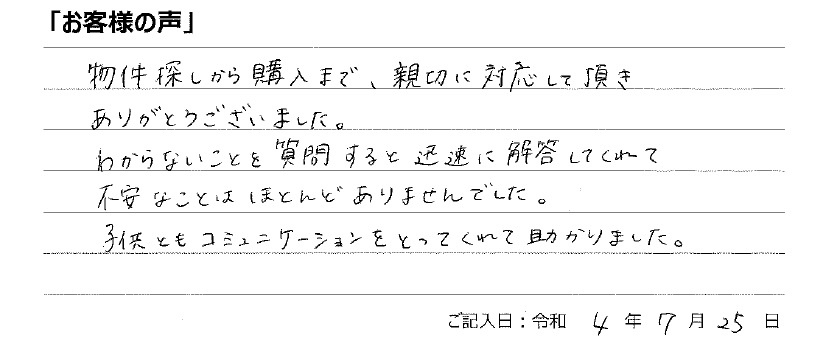 「お客様の声」
物件探しから購入まで、親切に対応して頂き
ありがとうございました。
わからないことを質問すると迅速に解答してくれて
不安なことはほとんどありませんでした。
子供ともコミュニケーションをとってくれて助かりました。
ご記入日：令和 4 年 7 月 25 日